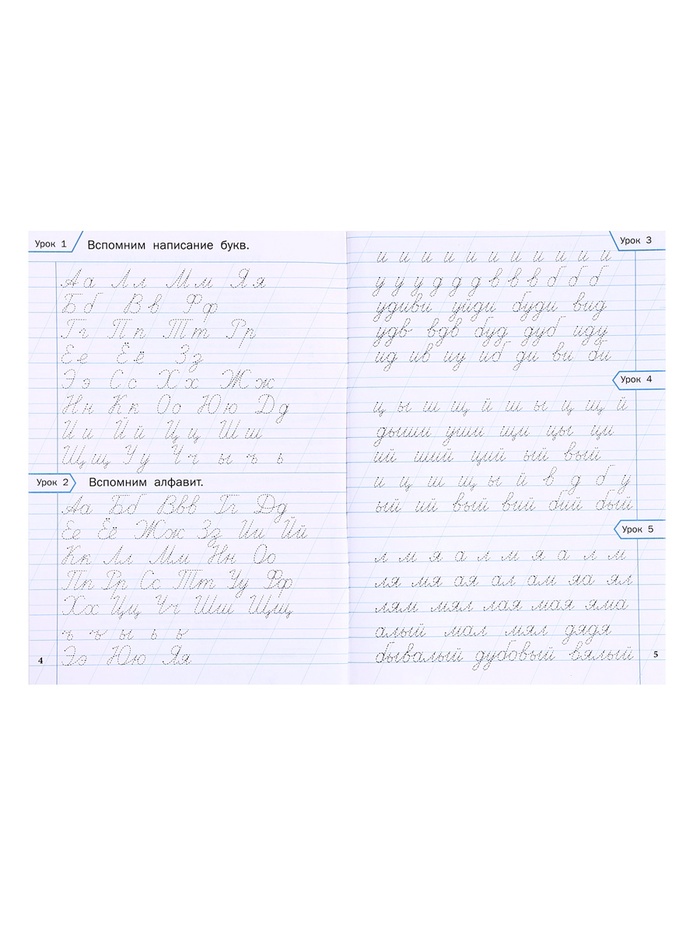 Урок 1
Вспомним написание букв.
Аа Лл Мм Яя
Бб Вв Фф
Гг Пп Тт Рр
Ее Ёё Зз
Ээ Сс Хх Жж
Нн Кк Оо Юю Дд
Ии Йй Цц Шш
Щщ Уу Чч ы ъ ь
Урок 2
Вспомним алфавит.
Аа Бб Ввв Гг Дд
Ее Ёё Жж Зз Ии Йй
Кк Лл Мм Нн Оо
Пп Рр Сс Тт Уу Фф
Хх Цц Чч Шш Щщ
ъ ъ ы ь ь
Ээ Юю Яя
4
Урок 3
и и и и и и и и и и и
у у у д д д в в в б б б
удиви уйди буди вид
удв вдв буд дуб иду
ид ив иу иб ди ви би
Урок 4
ц ы ш щ й ш ы ц щ й
дыши уши щи цы ци
ий ший ций ый вый
и ц ш щ ы й в д б у
ый ий вый вий бий бый
Урок 5
л м я а л м я а л м
ля мя ая ал ам яа ял
лям мял лая мая яма
алый мал мял дядя
бывалый дубовый вялый
5